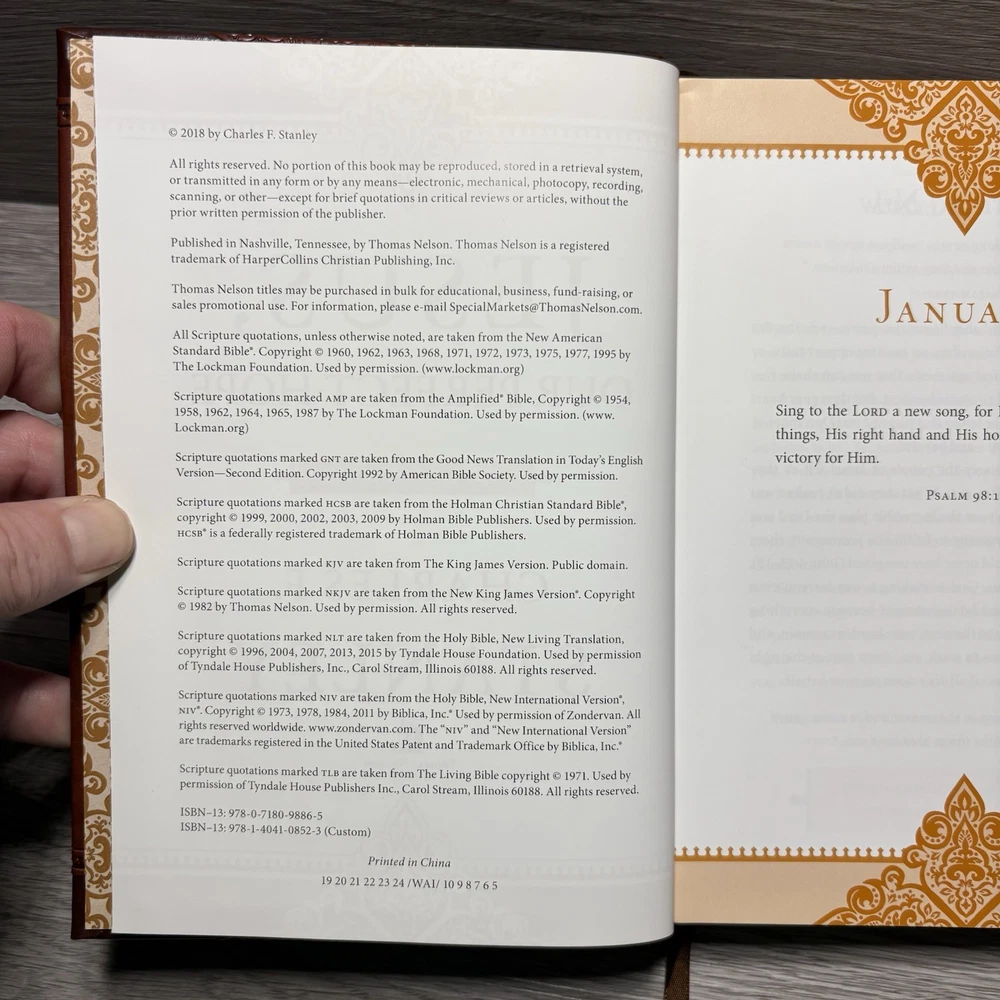 © 2018 by Charles F. Stanley
All rights reserved. No portion of this book may be reproduced, stored in a retrieval system,
or transmitted in any form or by any means—electronic, mechanical, photocopy, recording,
scanning, or other—except for brief quotations in critical reviews or articles, without the
prior written permission of the publisher.
Published in Nashville, Tennessee, by Thomas Nelson. Thomas Nelson is a registered
trademark of HarperCollins Christian Publishing, Inc.
Thomas Nelson titles may be purchased in bulk for educational, business, fund-raising, or
sales promotional use. For information, please e-mail SpecialMarkets@ThomasNelson.com.
All Scripture quotations, unless otherwise noted, are taken from the New American
Standard Bible®. Copyright © 1960, 1962, 1963, 1968, 1971, 1972, 1973, 1975, 1977, 1995 by
The Lockman Foundation. Used by permission. (www.lockman.org)
Scripture quotations marked AMP are taken from the Amplified® Bible, Copyright © 1954,
1958, 1962, 1964, 1965, 1987 by The Lockman Foundation. Used by permission. (www.
Lockman.org)
Scripture quotations marked GNT are taken from the Good News Translation in Today's English
Version—Second Edition. Copyright 1992 by American Bible Society. Used by permission.
Scripture quotations marked HCSB are taken from the Holman Christian Standard Bible®,
copyright © 1999, 2000, 2002, 2003, 2009 by Holman Bible Publishers. Used by permission.
HCSB® is a federally registered trademark of Holman Bible Publishers.
Scripture quotations marked KJV are taken from The King James Version. Public domain.
Scripture quotations marked NKJV are taken from the New King James Version®. Copyright
© 1982 by Thomas Nelson. Used by permission. All rights reserved.
Scripture quotations marked NLT are taken from the Holy Bible, New Living Translation,
copyright © 1996, 2004, 2007, 2013, 2015 by Tyndale House Foundation. Used by permission
of Tyndale House Publishers, Inc., Carol Stream, Illinois 60188. All rights reserved.
Scripture quotations marked NIV are taken from the Holy Bible, New International Version®,
NIV®. Copyright © 1973, 1978, 1984, 2011 by Biblica, Inc.® Used by permission of Zondervan. All
rights reserved worldwide. www.zondervan.com. The “NIV” and “New International Version”
are trademarks registered in the United States Patent and Trademark Office by Biblica, Inc.®
Scripture quotations marked TLB are taken from The Living Bible copyright © 1971. Used by
permission of Tyndale House Publishers Inc., Carol Stream, Illinois 60188. All rights reserved.
ISBN–13: 978-0-7180-9886-5
ISBN–13: 978-1-4041-0852-3 (Custom)
Printed in China
19 20 21 22 23 24 /WAI/ 10 9 8 7 6 5
JANUA
Sing to the LORD a new song, for
things, His right hand and His ho
victory for Him.
PSALM 98:1